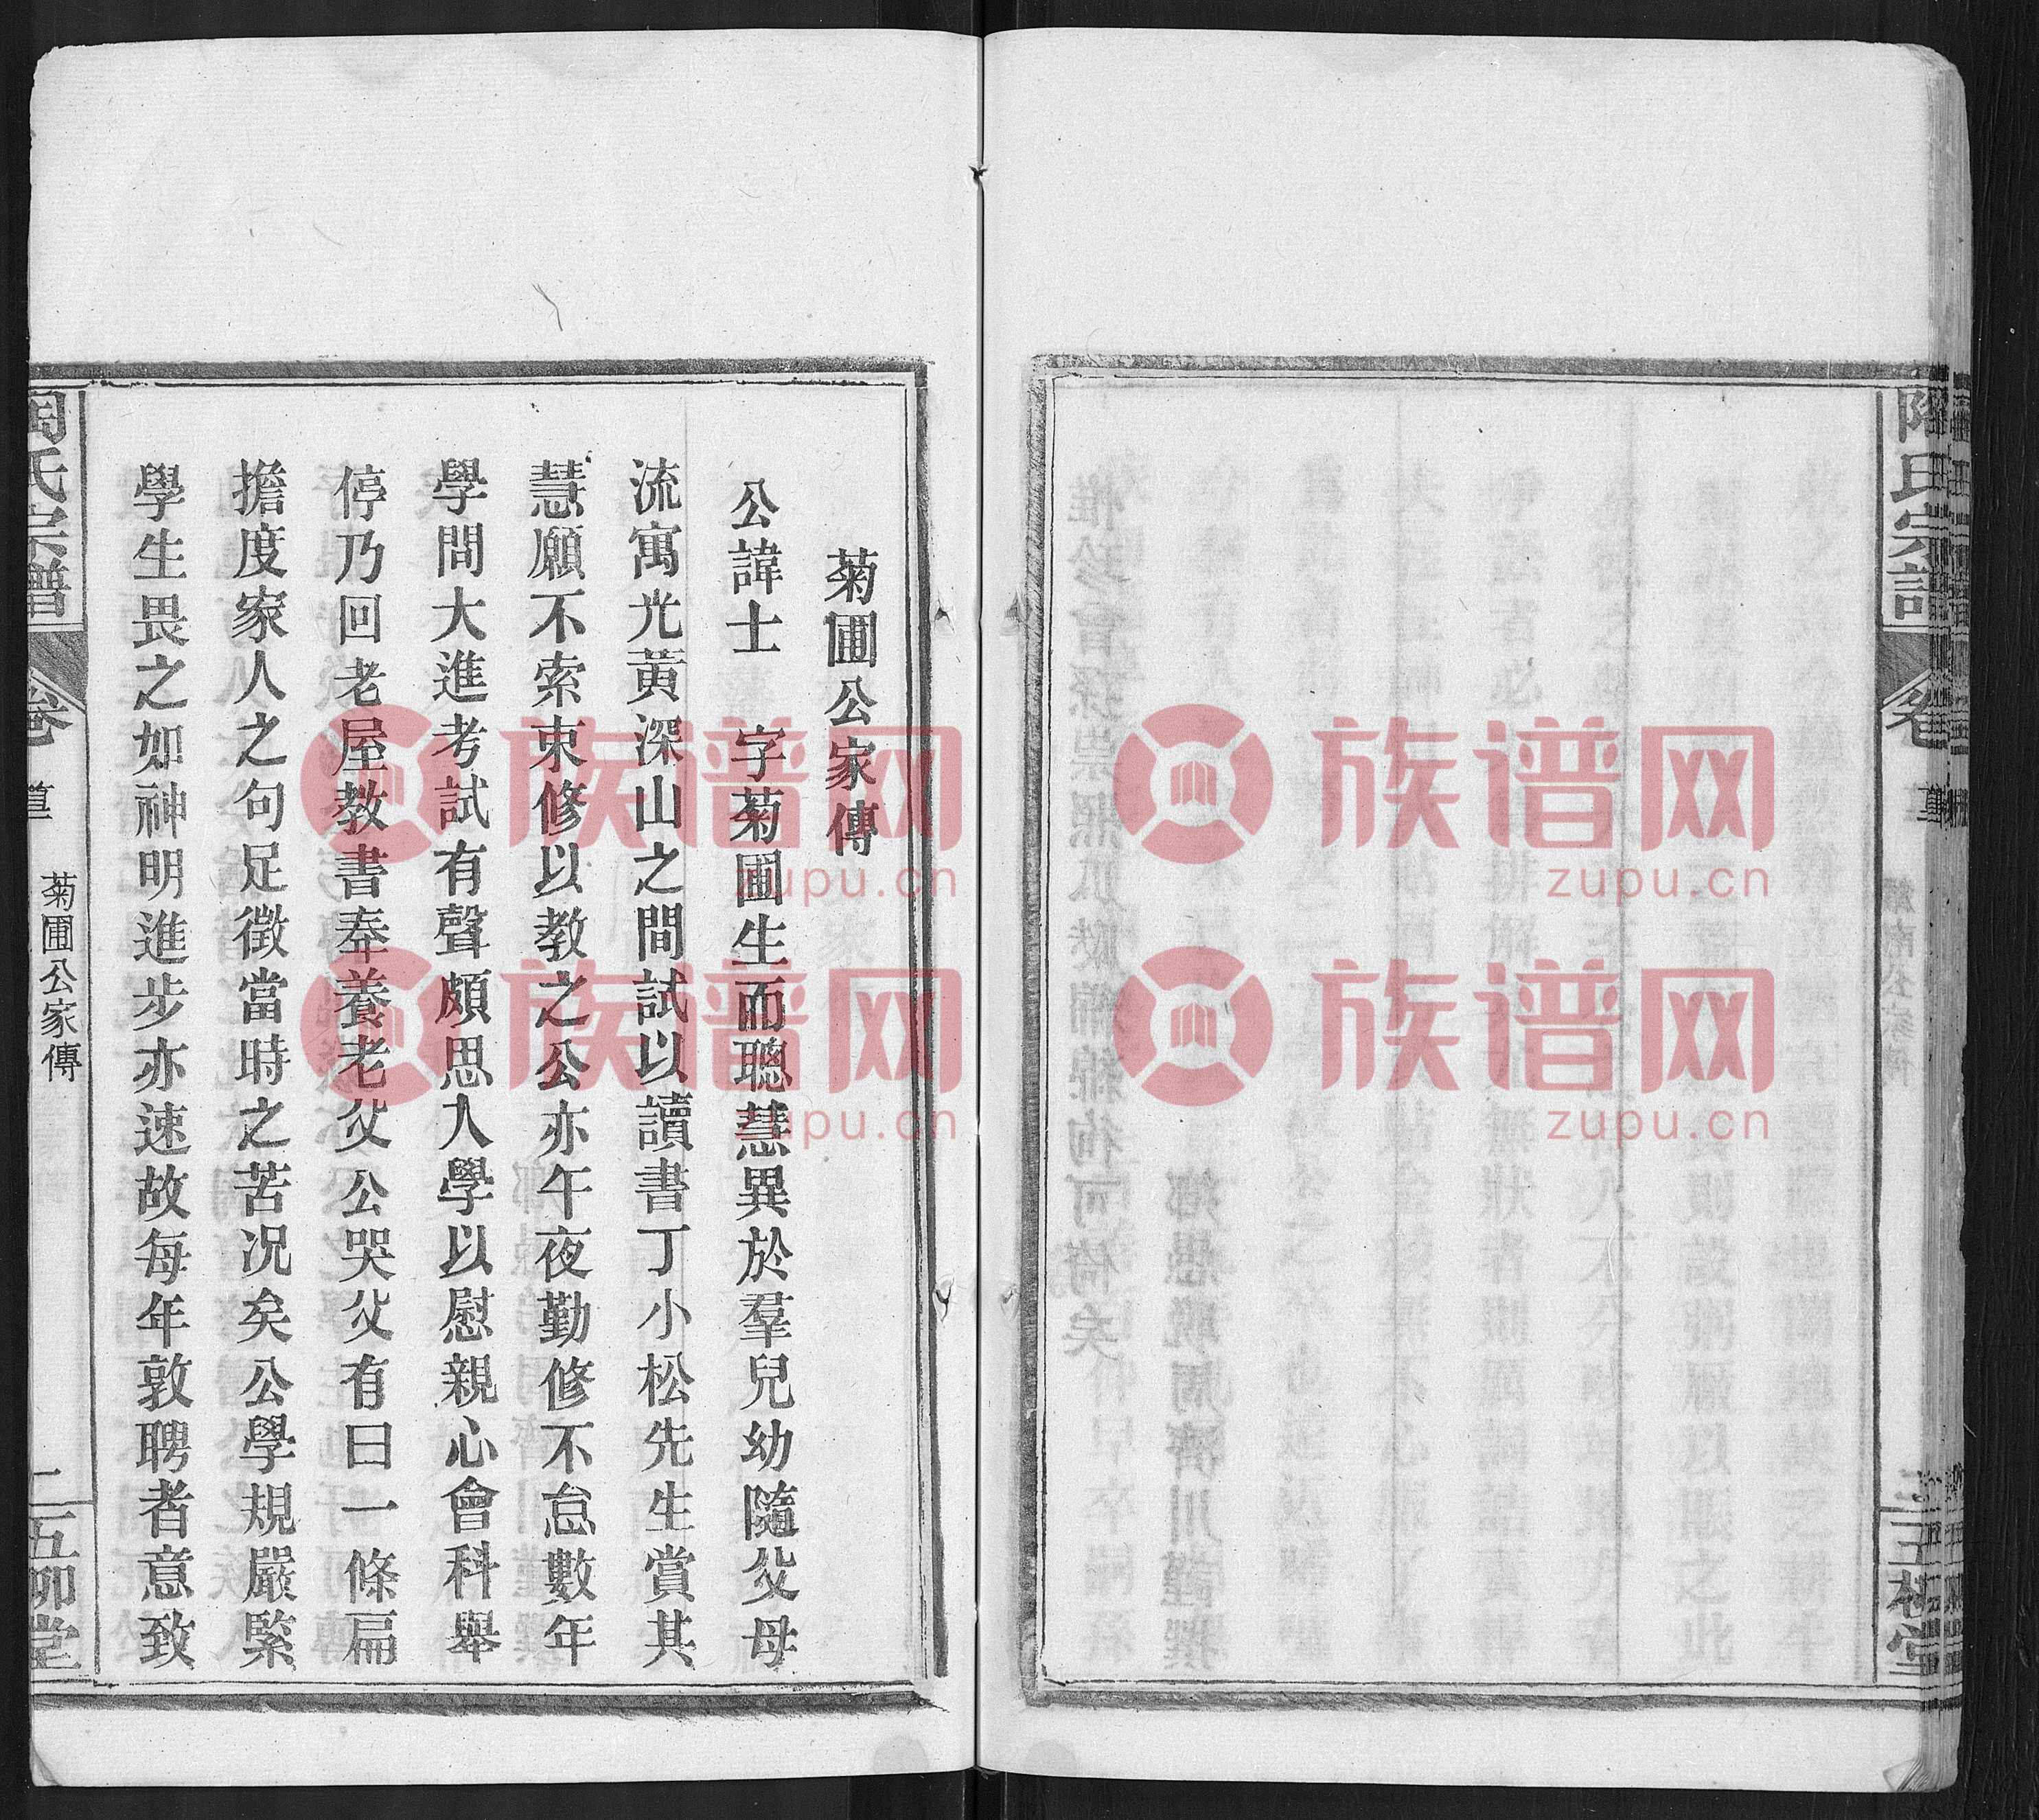 菊圃公家傳
公諱士　字菊圃生而聰慧異於羣兒幼隨父母
流寓光黃深山之間試以讀書丁小松先生賞其
慧願不索束修以教之公亦午夜勤修不怠數年
學問大進考試有聲頗思入學以慰親心會科舉
停乃回老屋教書奉養老父公哭父有曰一條扁
擔度家人之句足徵當時之苦况矣公學規嚴緊
學生畏之如神明進步亦速故每年敦聘者意致
氏宗譜
卷
菊圃公家傳
二
五柳堂
氏宗譜
卷
堂
族谱网
zupu.cn
族谱网
zupu.cn
族谱网
zupu.cn
族谱网
zupu.cn